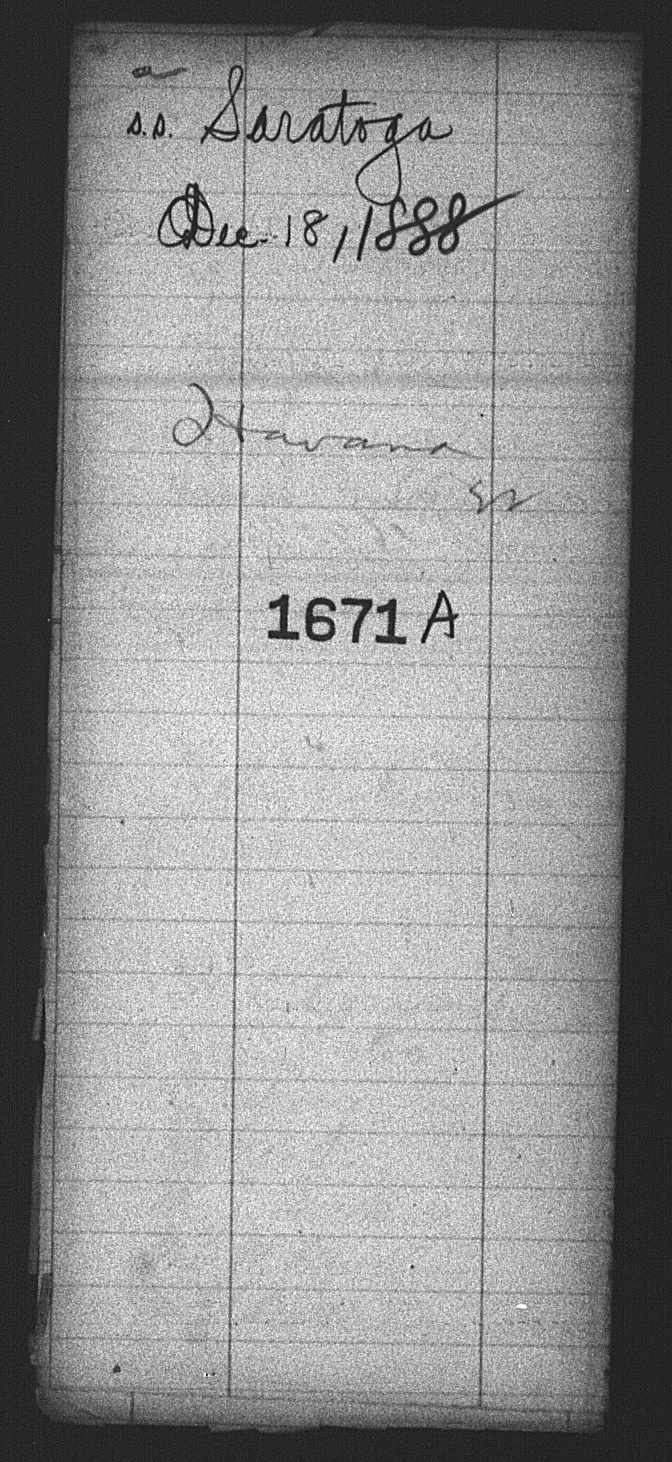 s.s. Saratoga
Dec. 18, 1888
Havana
1671 A